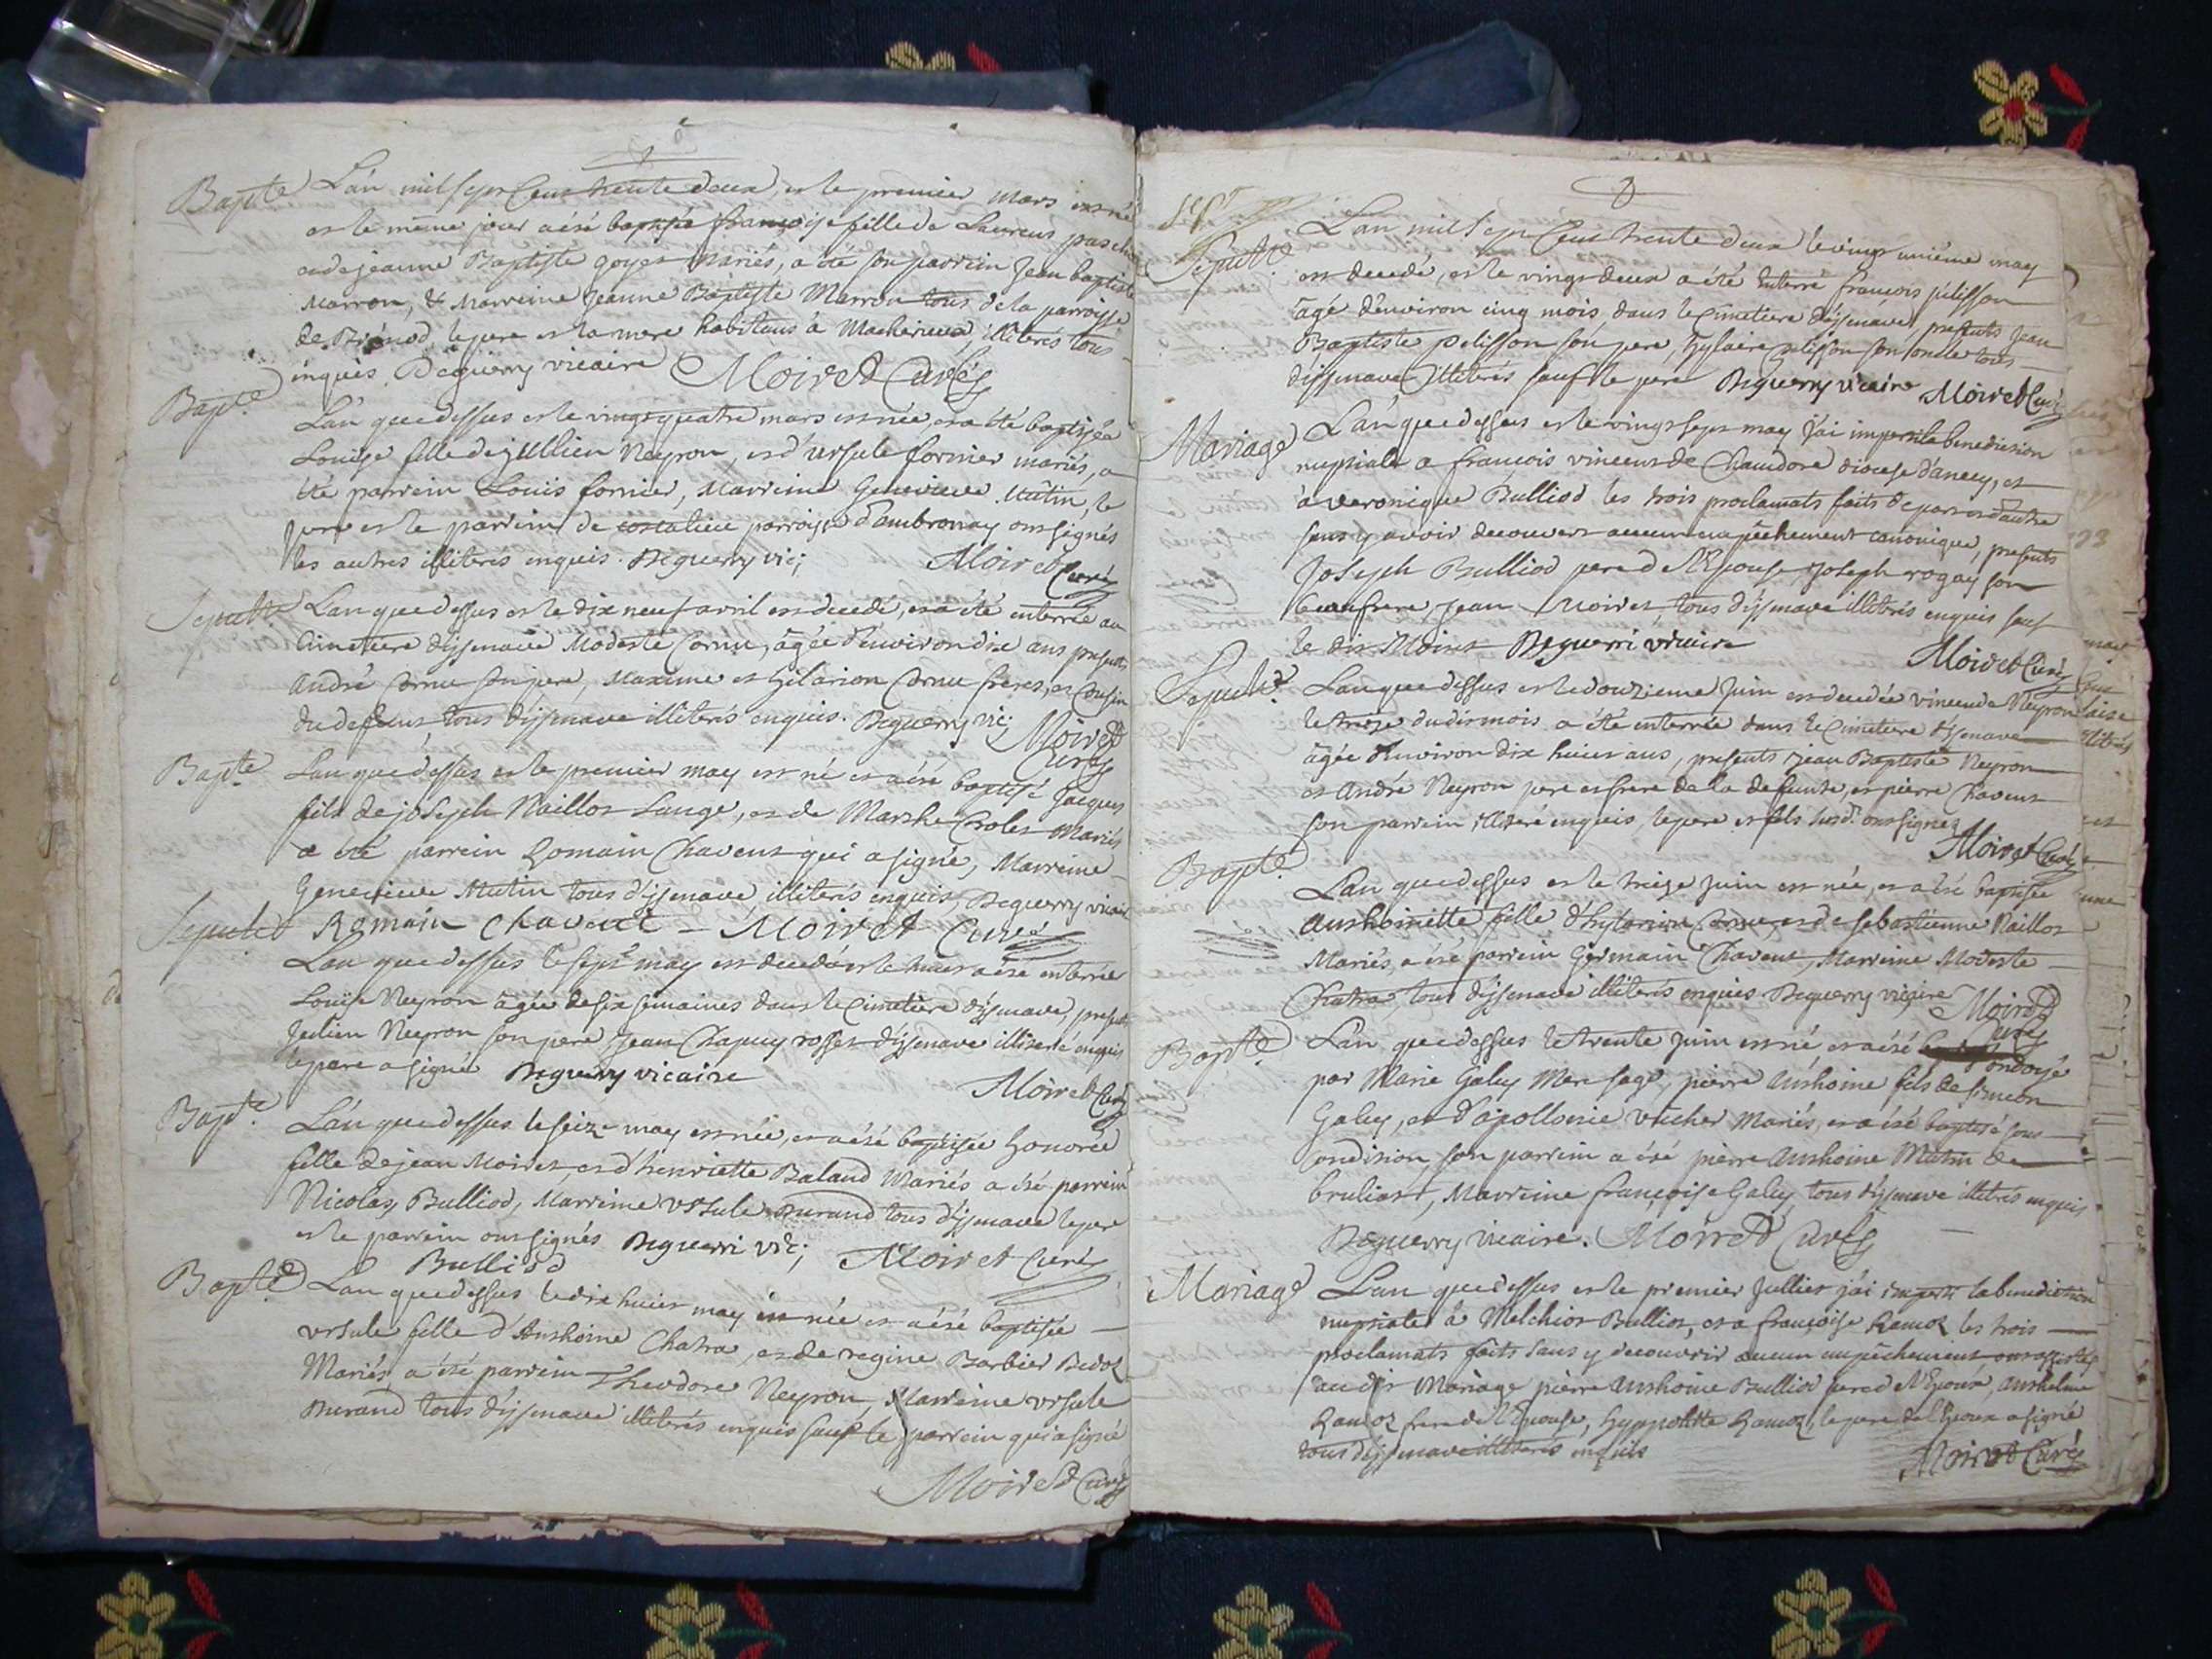 Bapte L'an mil sept Cent trente deux, et le premier Mars est né
et le même jour a été baptisée françoise fille de Laurens
et de jeanne Baptiste goyet Mariés, a été son parrein Jean baptiste
Marron, & Marreine Jeanne Baptiste Marron tous de la parroisse
de Brénod, le pere et la mere habitans à Macherieux, illiterés tous
inquis, Deguerry vicaire Moiret Curé
Bapte L'an que dessus et le vingt quatre mars est née, et a été baptisée
Louïse fille de jullien Neyron, et d'ursule fornier mariés, a
été parrein Louïs fornier, Marreine Genevieve Mâtin, le
pere et le parrein de parroisse d'ambronay ont signés
les autres illiterés enquis. Deguerry vic; Moiret Curé
Sepultre L'an que dessus et le dix neuf avril est decedé, et a été enterrée au
Cimetiere d'jssenave Modeste Cornu, âgée d'environ dix ans presents
André Cornu son pere, Maxime et hilarion Cornu freres, et Cousin
du defunt tous d'jssenave illiterés enquis. Deguerry vic; Moiret
Curé
Bapte L'an que dessus et le premier may est né et a été baptisé Jacques
fils de joseph Naillot Lange, et de Marthe Croles Mariés
a été parrein Romain Chavent qui a signé, Marreine
Genevieve Mutin tous d'jssenave illiterés enquis, Deguerry vicaire
Romain Chavent – Moiret Curé
Sepulte L'an que dessus le sept may est decedé et le huit a été enterrée
Louïse Neyron âgée de six semaines dans le Cimetiere d'jssenave, presents
Julien Neyron son pere, Jean Chapuy rosset d'jssenave illiteré enquis
le pere a signé Deguerry vicaire Moiret Curé
Bapte L'an que dessus le seize may est née, et a été baptisée honorée
fille de jean Moiret, et d'henriette Baland Mariés a été parrein
Nicolas Bulliod, Marreine ursule Durand tous d'jssenave le pere
et le parrein ont signés Deguerri vic; Moiret Curé
Bulliod
Bapte L'an que dessus le dix huict may est née et a été baptisée
ursule fille d'Anthoine Chatra, et de regine Barbier Bedoz
Mariés a été parrein Theodore Neyron, Marreine ursule
Durand tous d'jssenave illiterés enquis sauf le parrein qui a signé
Moiret Curé
Sept
Sepultre L'an mil sept Cent trente deux le vingt unième may
est decedé, et le vingt deux a été Enterré francois pelisson
âgé d'environ cinq mois dans le Cimetiere d'jssenave, presents Jean
Baptiste pelisson son pere, hylaire pelisson son oncle tous
d'jssenave illiterés sauf le pere Deguerry vicaire Moiret Curé
Mariage L'an que dessus et le vingt sept may j'ai imparti la benediction
nuptiale a francois vincent de Chandore diocese d'anecy, et
à veronique Bulliod les trois proclamats faits de part et d'autre
sans y avoir decouvert aucun empêchement canonique, presents
Joseph Bulliod pere de l'Epouse, Joseph rogay son
beaufrere, Jean Moiret tous d'jssenave illiterés enquis sauf
le dit Moiret Deguerri vicaire Moiret Curé
Sepultre L'an que dessus et le douzieme Juin est decedée vincende Neyron
le treize du dit mois a été enterrée dans le Cimetiere d'jssenave
âgée d'environ dix huict ans, presents Jean Baptiste Neyron
et André Neyron pere et frere de la defunte, et pierre Chavent
son parrein illiteré enquis, le pere et fils susd. ont signés
Moiret Curé
Bapte L'an que dessus et le treize juin est née, et a été baptisée
Anthoinette fille d'hylarion Cornu, et de sebastienne Naillot
Mariés, a été parrein Germain Chavent, Marreine Modeste
Chatra, tous d'jssenave illiterés enquis Deguerry vicaire Moiret
Curé
Bapte L'an que dessus le trente juin est né et a été ondoyé
par Marie Galey Mere sage, pierre Anthoine fils de simeon
Galey, et d'apollonie vucher Mariés, et a été baptisé sous
condition, son parrein a été pierre Anthoine Mutin de
brulias, Marreine françoise Galey tous d'jssenave illiterés enquis
Deguerry vicaire. Moiret Curé
Mariage L'an que dessus et le premier Jullies j'ai imparti la benediction
nuptiale à Melchior Bulliot, et a françoise Ramoz les trois
proclamats faits sans y decouvrir aucun empêchement ont assistés
au dit Mariage pierre Anthoine Bulliod pere de l'Epoux, Anthelme
Ramoz frere de l'Epouse, hyppolitte Ramoz, le pere de l'Epoux a signé
tous d'jssenave illiterés enquis Moiret Curé